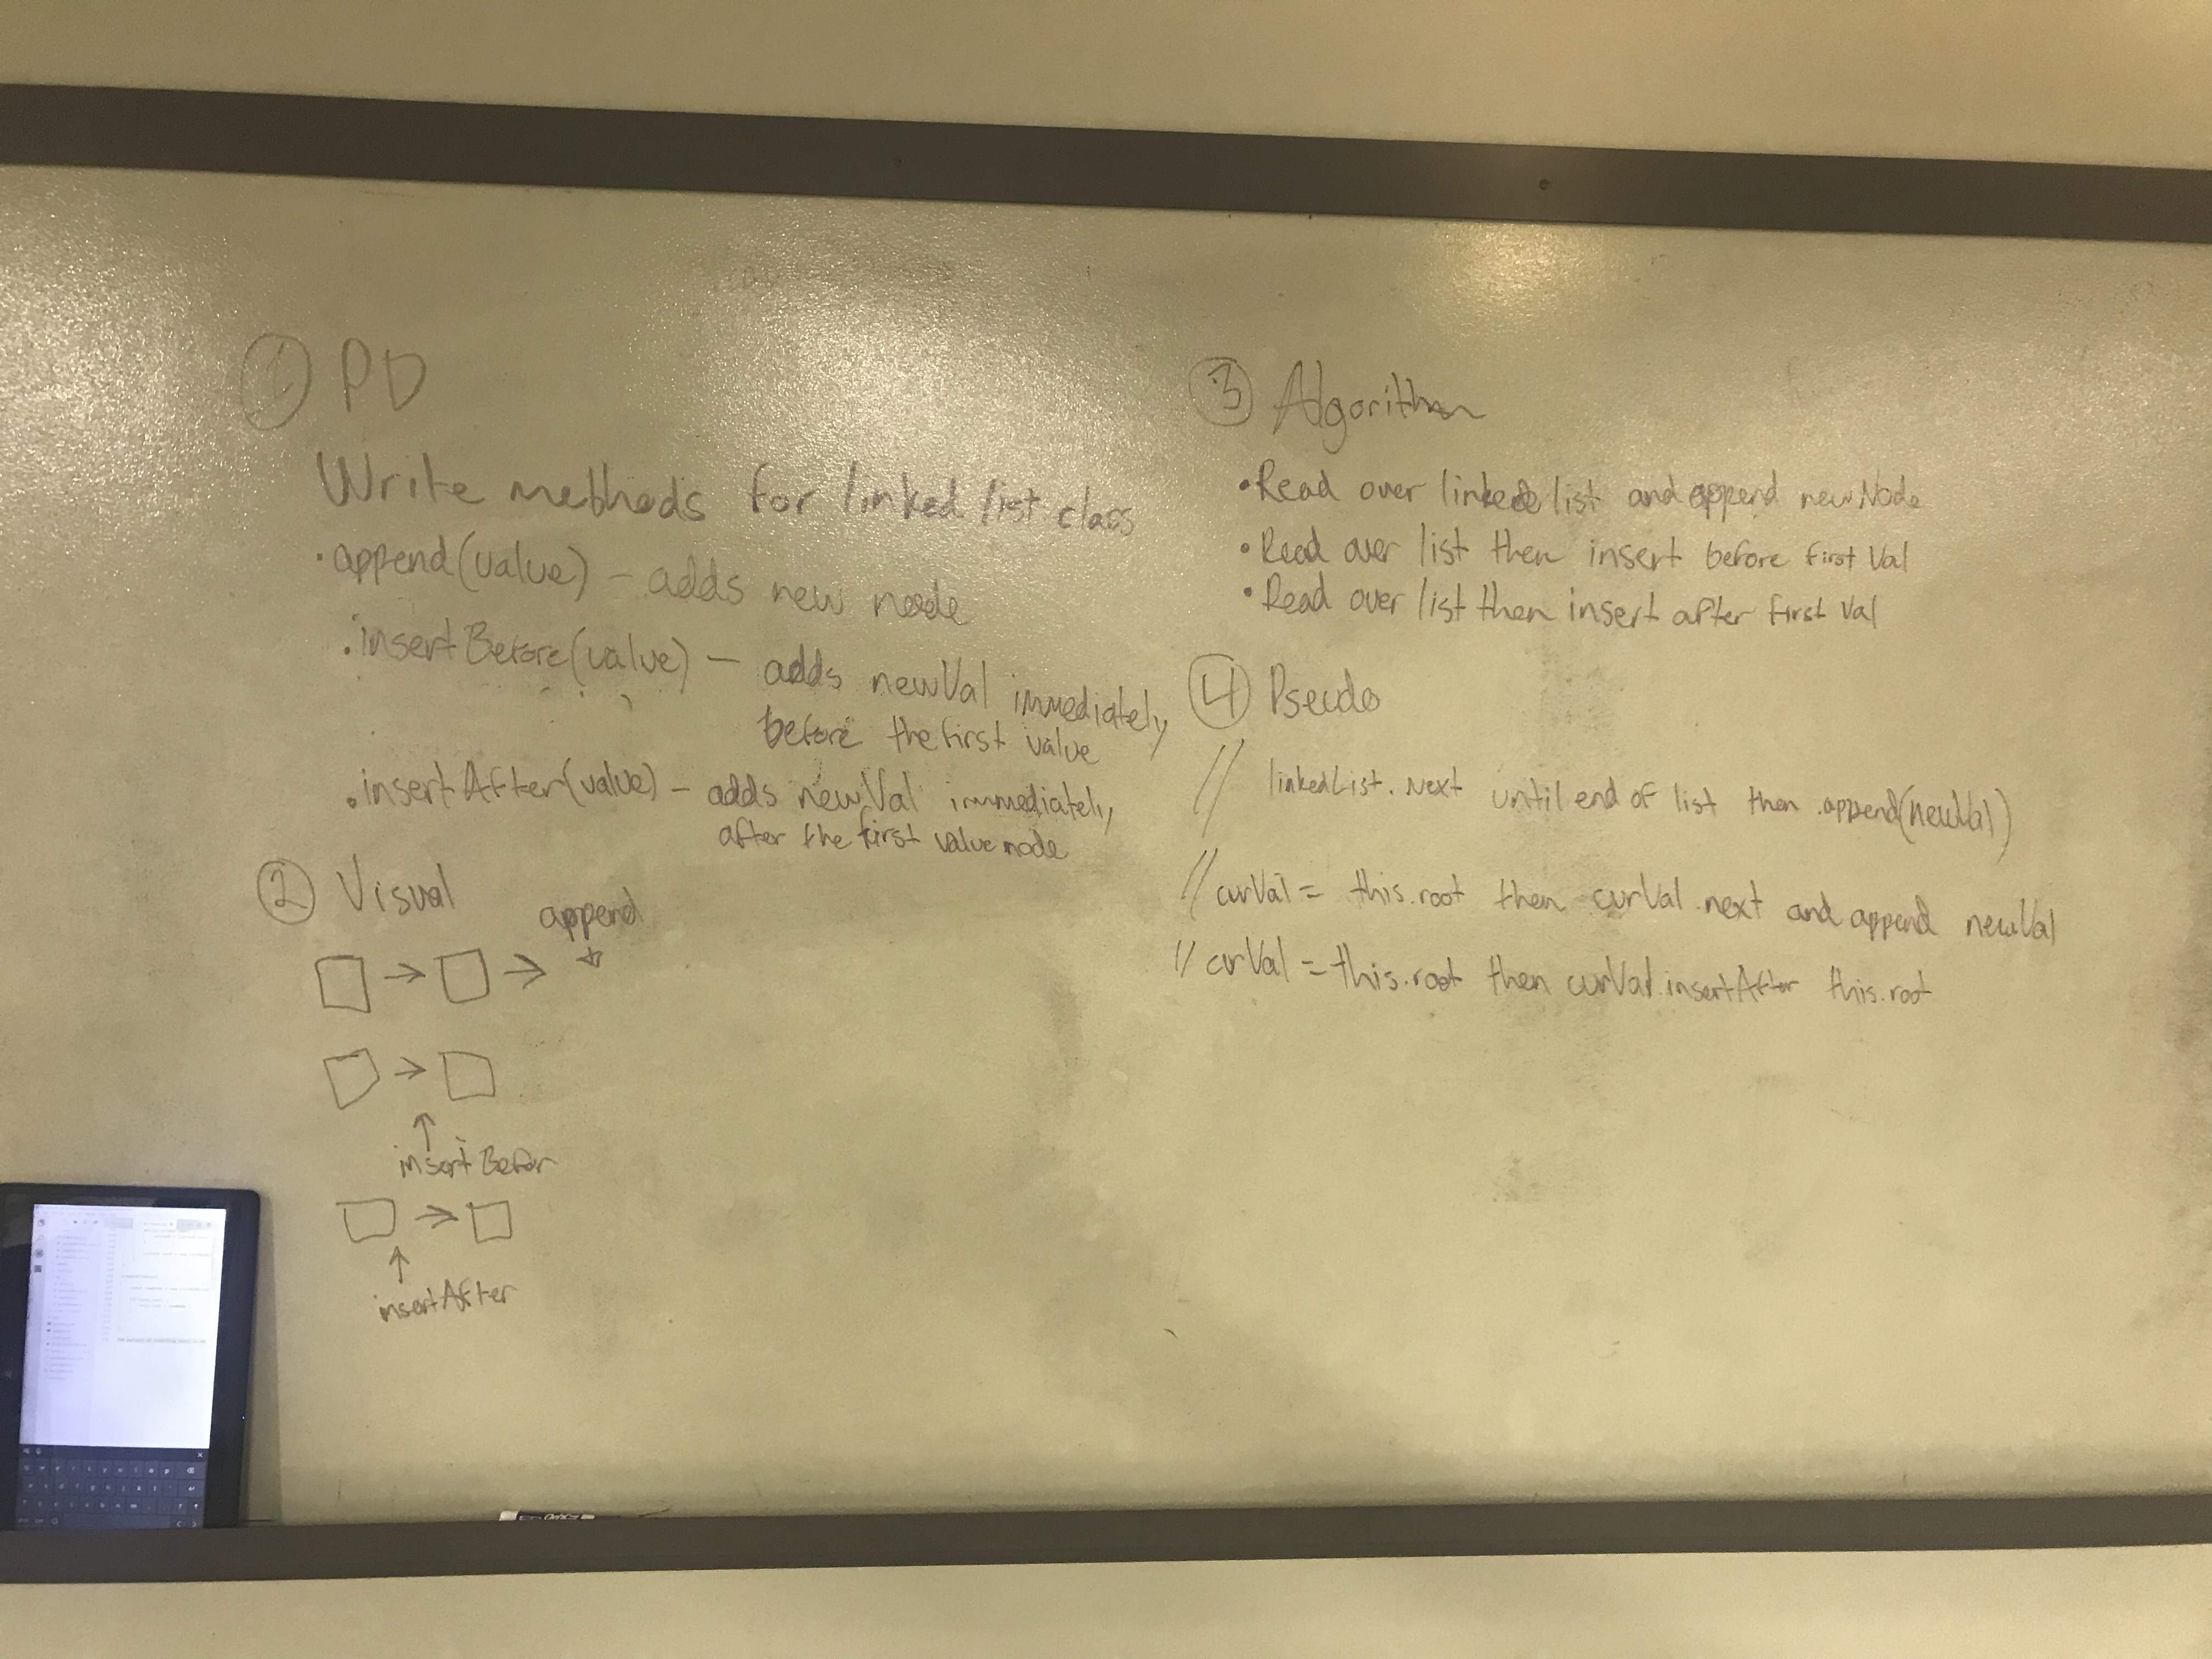 ① PD
Write methods for linked list class
· append(value) – adds new node
· insertBefore(value) – adds newVal immediately
before the first value
· insertAfter(value) – adds newVal immediately
after the first value node
② Visual
append
insertBefor
insertAfter
③ Algorithm
• Read over linked list and append newNode
• Read over list then insert before first Val
• Read over list then insert after first val
④ Pseudo
// linkedList.Next until end of list then .append(newVal)
// curVal = this.root then curVal.next and append newVal
// curVal = this.root then curVal.insertAfter this.root